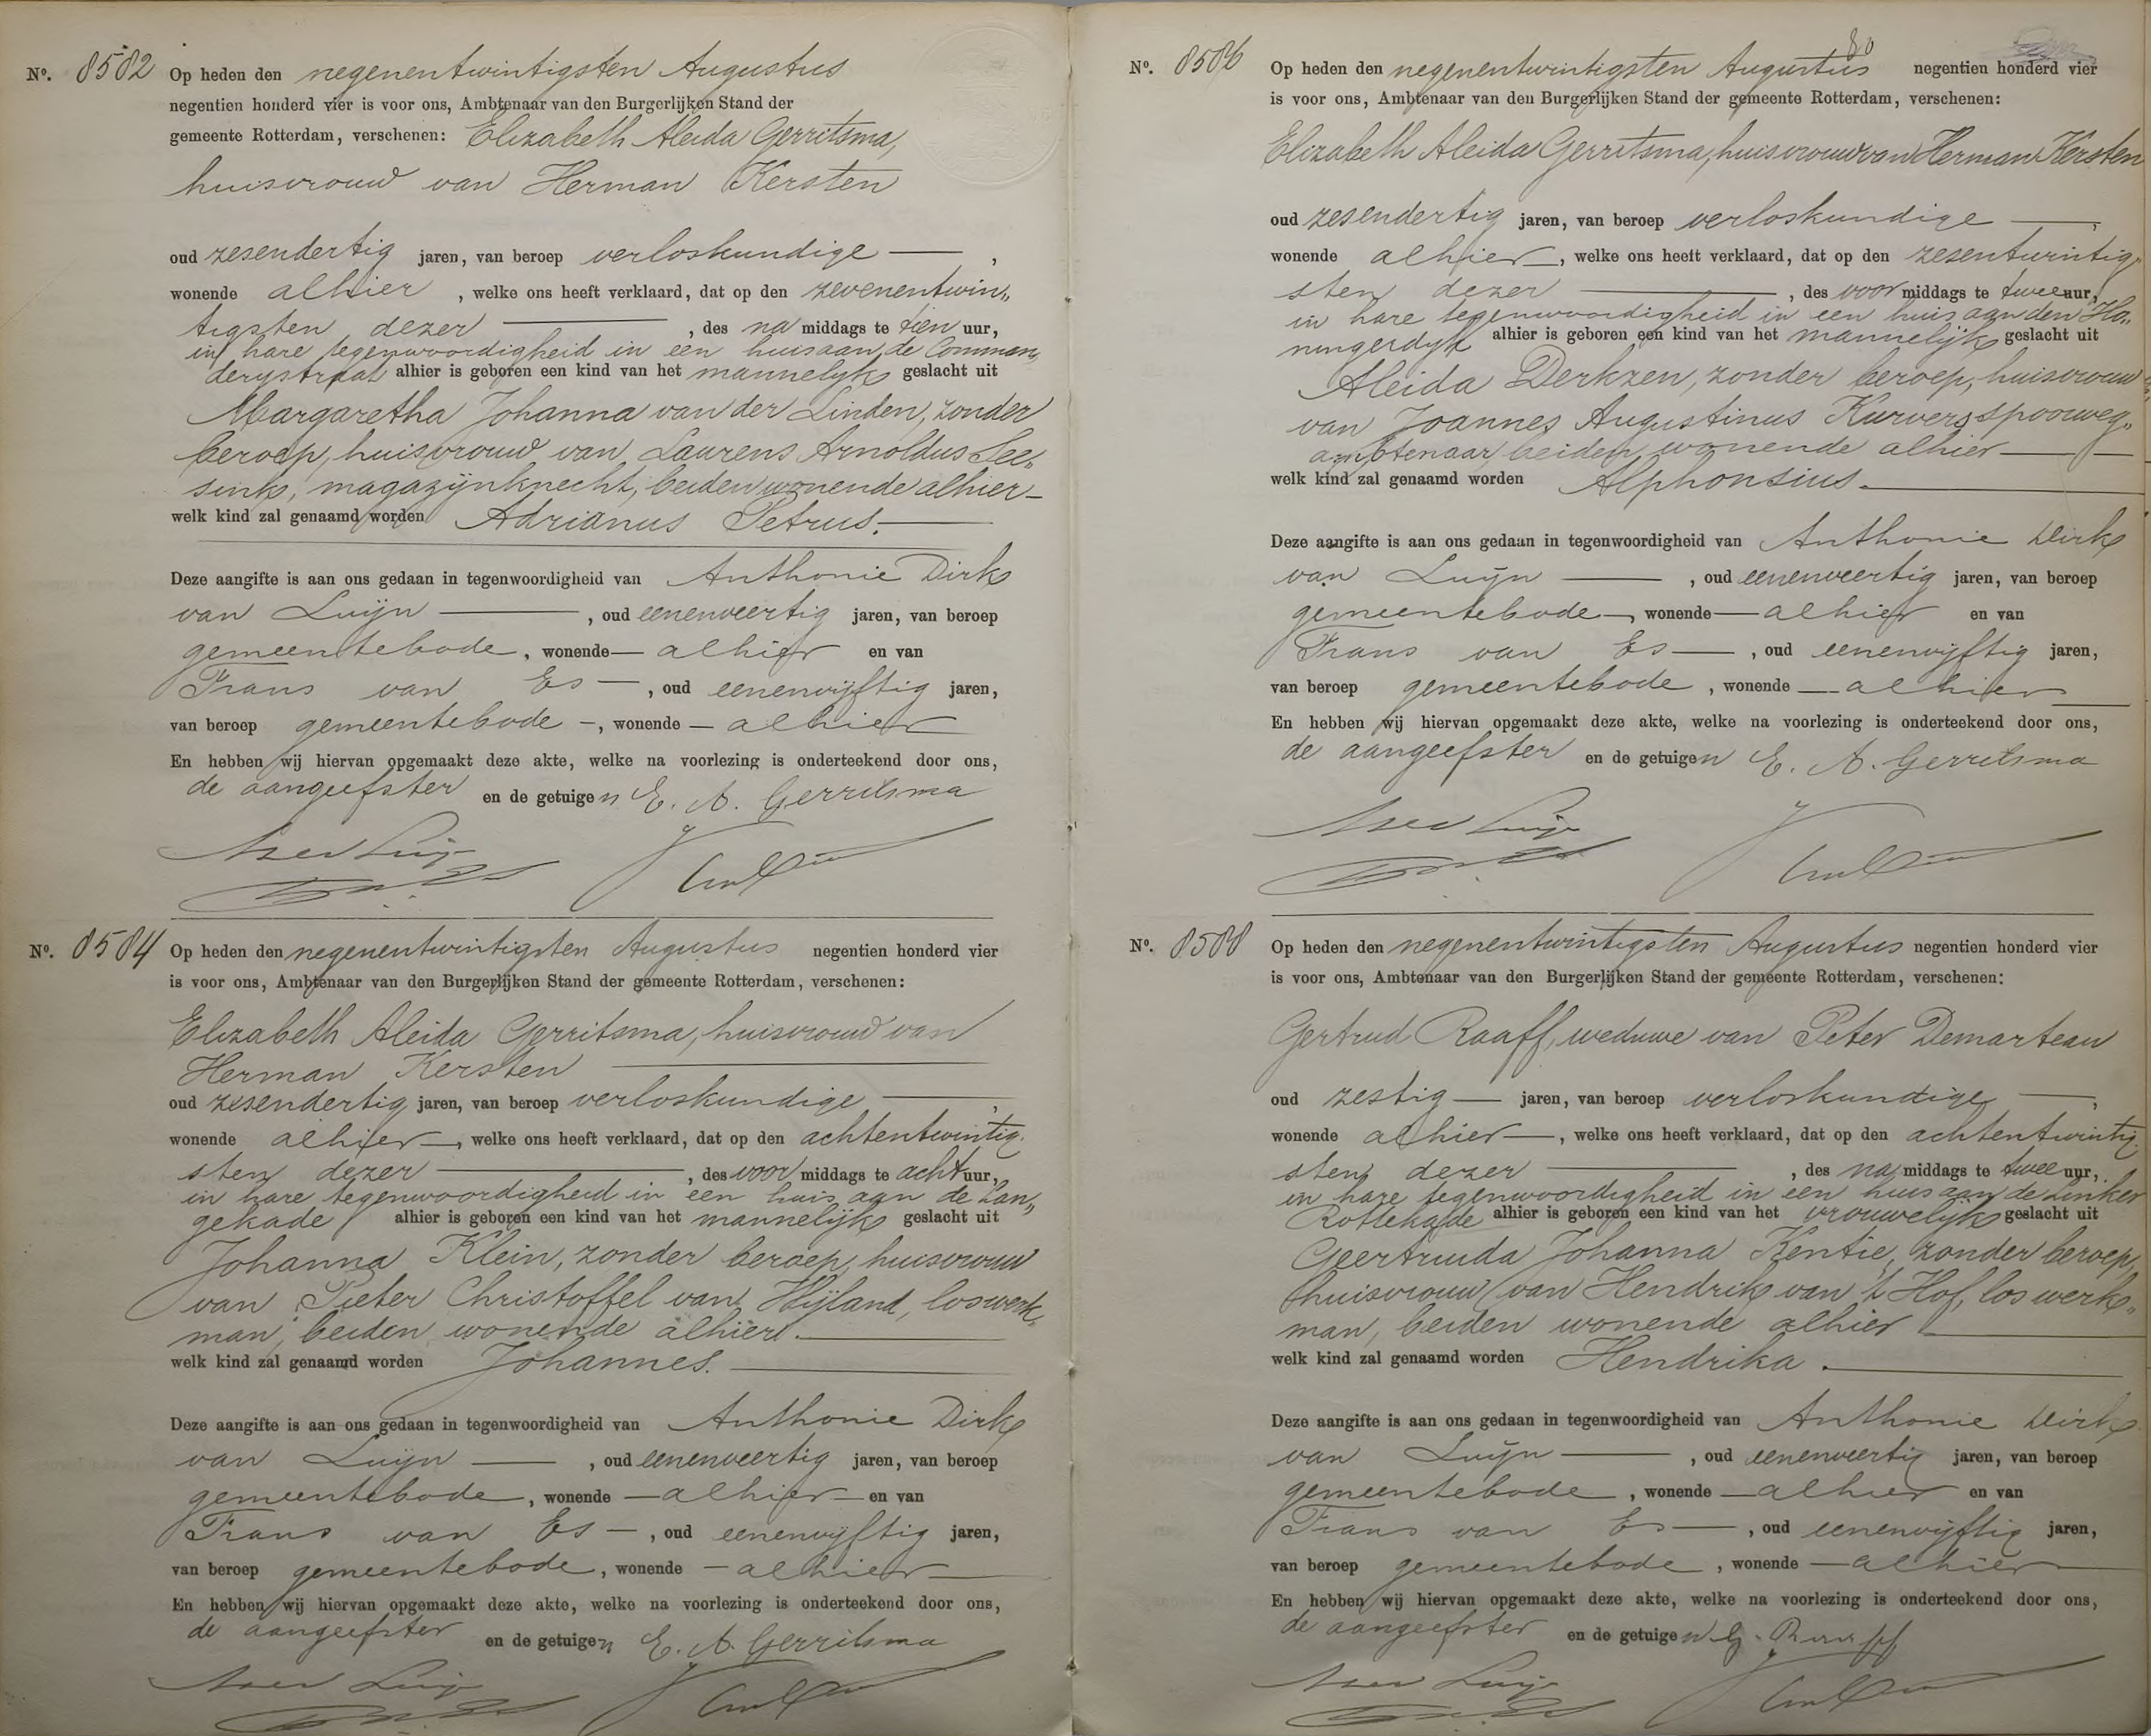 No. 8582 Op heden den negenentwintigsten Augustus
negentien honderd vier is voor ons, Ambtenaar van den Burgerlijken Stand der
gemeente Rotterdam, verschenen: Elizabeth Aleida Gerritsma,
huisvrouw van Herman Kersten
oud zesendertig jaren, van beroep verloskundige — ,
wonende alhier , welke ons heeft verklaard, dat op den zevenentwin„
tigsten dezer — , des na middags te tien uur,
in hare tegenwoordigheid in een huis aan de Comman„
derystraat alhier is geboren een kind van het mannelijk geslacht uit
Margaretha Johanna van der Linden, zonder
beroep, huisvrouw van Laurens Arnoldus See„
sink, magazijnknecht, beiden wonende alhier —
welk kind zal genaamd worden Adrianus Petrus. —
Deze aangifte is aan ons gedaan in tegenwoordigheid van Anthonie Dirk
van Luijn — , oud eenenveertig jaren, van beroep
gemeentebode , wonende — alhier en van
Frans van Es — , oud eenenvijftig jaren,
van beroep gemeentebode — , wonende — alhier
En hebben wij hiervan opgemaakt deze akte, welke na voorlezing is onderteekend door ons,
de aangeefster en de getuigen E. A. Gerritsma
No. 8584 Op heden den negenentwintigsten Augustus negentien honderd vier
is voor ons, Ambtenaar van den Burgerlijken Stand der gemeente Rotterdam, verschenen:
Elizabeth Aleida Gerritsma, huisvrouw van
Herman Kersten —
oud zesendertig jaren, van beroep verloskundige — ,
wonende alhier — , welke ons heeft verklaard, dat op den achtentwintig„
sten dezer — , des voor middags te acht uur,
in hare tegenwoordigheid in een huis aan de Lan„
gekade alhier is geboren een kind van het mannelijk geslacht uit
Johanna Klein, zonder beroep, huisvrouw
van Pieter Christoffel van Hijland, loswerk„
man, beiden wonende alhier. —
welk kind zal genaamd worden Johannes. —
Deze aangifte is aan ons gedaan in tegenwoordigheid van Anthonie Dirk
van Luijn — , oud eenenveertig jaren, van beroep
gemeentebode , wonende — alhier — en van
Frans van Es — , oud eenenvijftig jaren,
van beroep gemeentebode , wonende — alhier —
En hebben wij hiervan opgemaakt deze akte, welke na voorlezing is onderteekend door ons,
de aangeefster en de getuigen E. A. Gerritsma
80
No. 8586 Op heden den negenentwintigsten Augustus negentien honderd vier
is voor ons, Ambtenaar van den Burgerlijken Stand der gemeente Rotterdam, verschenen:
Elizabeth Aleida Gerritsma, huisvrouw van Herman Kersten
oud zesendertig jaren, van beroep verloskundige — ,
wonende alhier — , welke ons heeft verklaard, dat op den zesentwintig„
sten dezer — , des voor middags te twee uur,
in hare tegenwoordigheid in een huis aan den Ho„
ningerdijk alhier is geboren een kind van het mannelijk geslacht uit
Aleida Derkzen, zonder beroep, huisvrouw
van Joannes Augustinus Kurvers, spoorweg„
ambtenaar, beiden wonende alhier —
welk kind zal genaamd worden Alphonsius. —
Deze aangifte is aan ons gedaan in tegenwoordigheid van Anthonie Dirk
van Luijn — , oud eenenveertig jaren, van beroep
gemeentebode — , wonende — alhier en van
Frans van Es — , oud eenenvijftig jaren,
van beroep gemeentebode , wonende — alhier —
En hebben wij hiervan opgemaakt deze akte, welke na voorlezing is onderteekend door ons,
de aangeefster en de getuigen E. A. Gerritsma
No. 8588 Op heden den negenentwintigsten Augustus negentien honderd vier
is voor ons, Ambtenaar van den Burgerlijken Stand der gemeente Rotterdam, verschenen:
Gertrud Raaff, weduwe van Peter Demarteau
oud zestig — jaren, van beroep verloskundige — ,
wonende alhier — , welke ons heeft verklaard, dat op den achtentwintig„
sten dezer — , des na middags te twee uur,
in hare tegenwoordigheid in een huis aan de Linker
Rottekade alhier is geboren een kind van het vrouwelijk geslacht uit
Geertruida Johanna Kentie, zonder beroep,
huisvrouw van Hendrik van 't Hof, los werk„
man, beiden wonende alhier —
welk kind zal genaamd worden Hendrika. —
Deze aangifte is aan ons gedaan in tegenwoordigheid van Anthonie Dirk
van Luijn — , oud eenenveertig jaren, van beroep
gemeentebode , wonende — alhier en van
Frans van Es — , oud eenenvijftig jaren,
van beroep gemeentebode , wonende — alhier —
En hebben wij hiervan opgemaakt deze akte, welke na voorlezing is onderteekend door ons,
de aangeefster en de getuigen G. Raaff